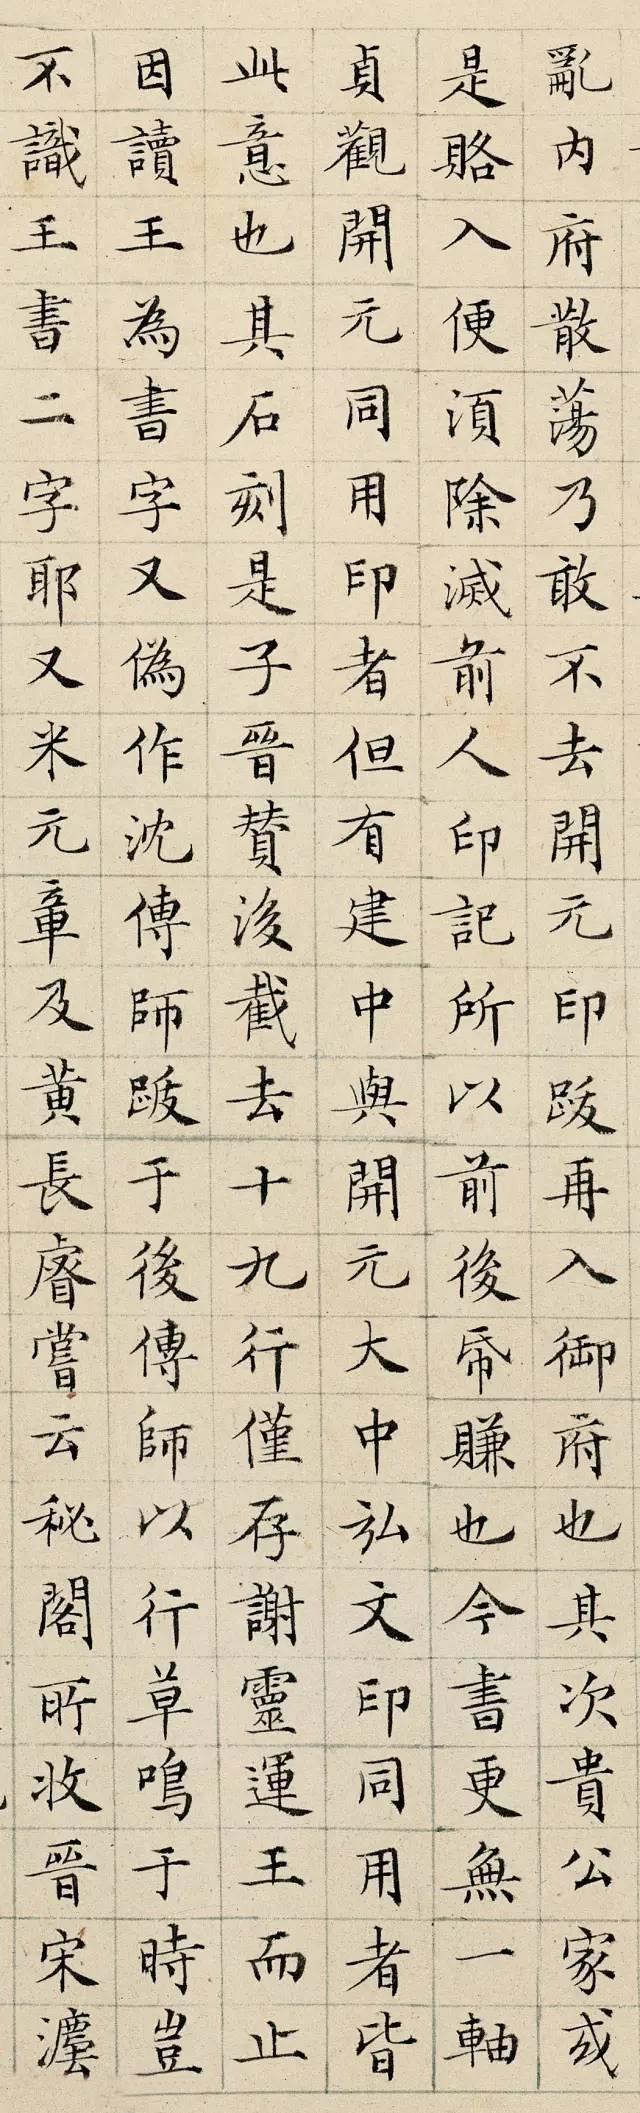 亂内府散蕩乃敢不去開元印跋再入御府也其次貴公家或
是賂入便須除滅前人印記所以前後帋賺也今書更無一軸
貞觀開元同用印者但有建中與開元大中弘文印同用者皆
此意也其石刻是子晉賛後截去十九行僅存謝靈運王而止
因讀王為書字又偽作沈傳師跋于後傳師以行草鳴于時豈
不識王書二字耶又米元章及黄長睿嘗云秘閣所收晉宋灋